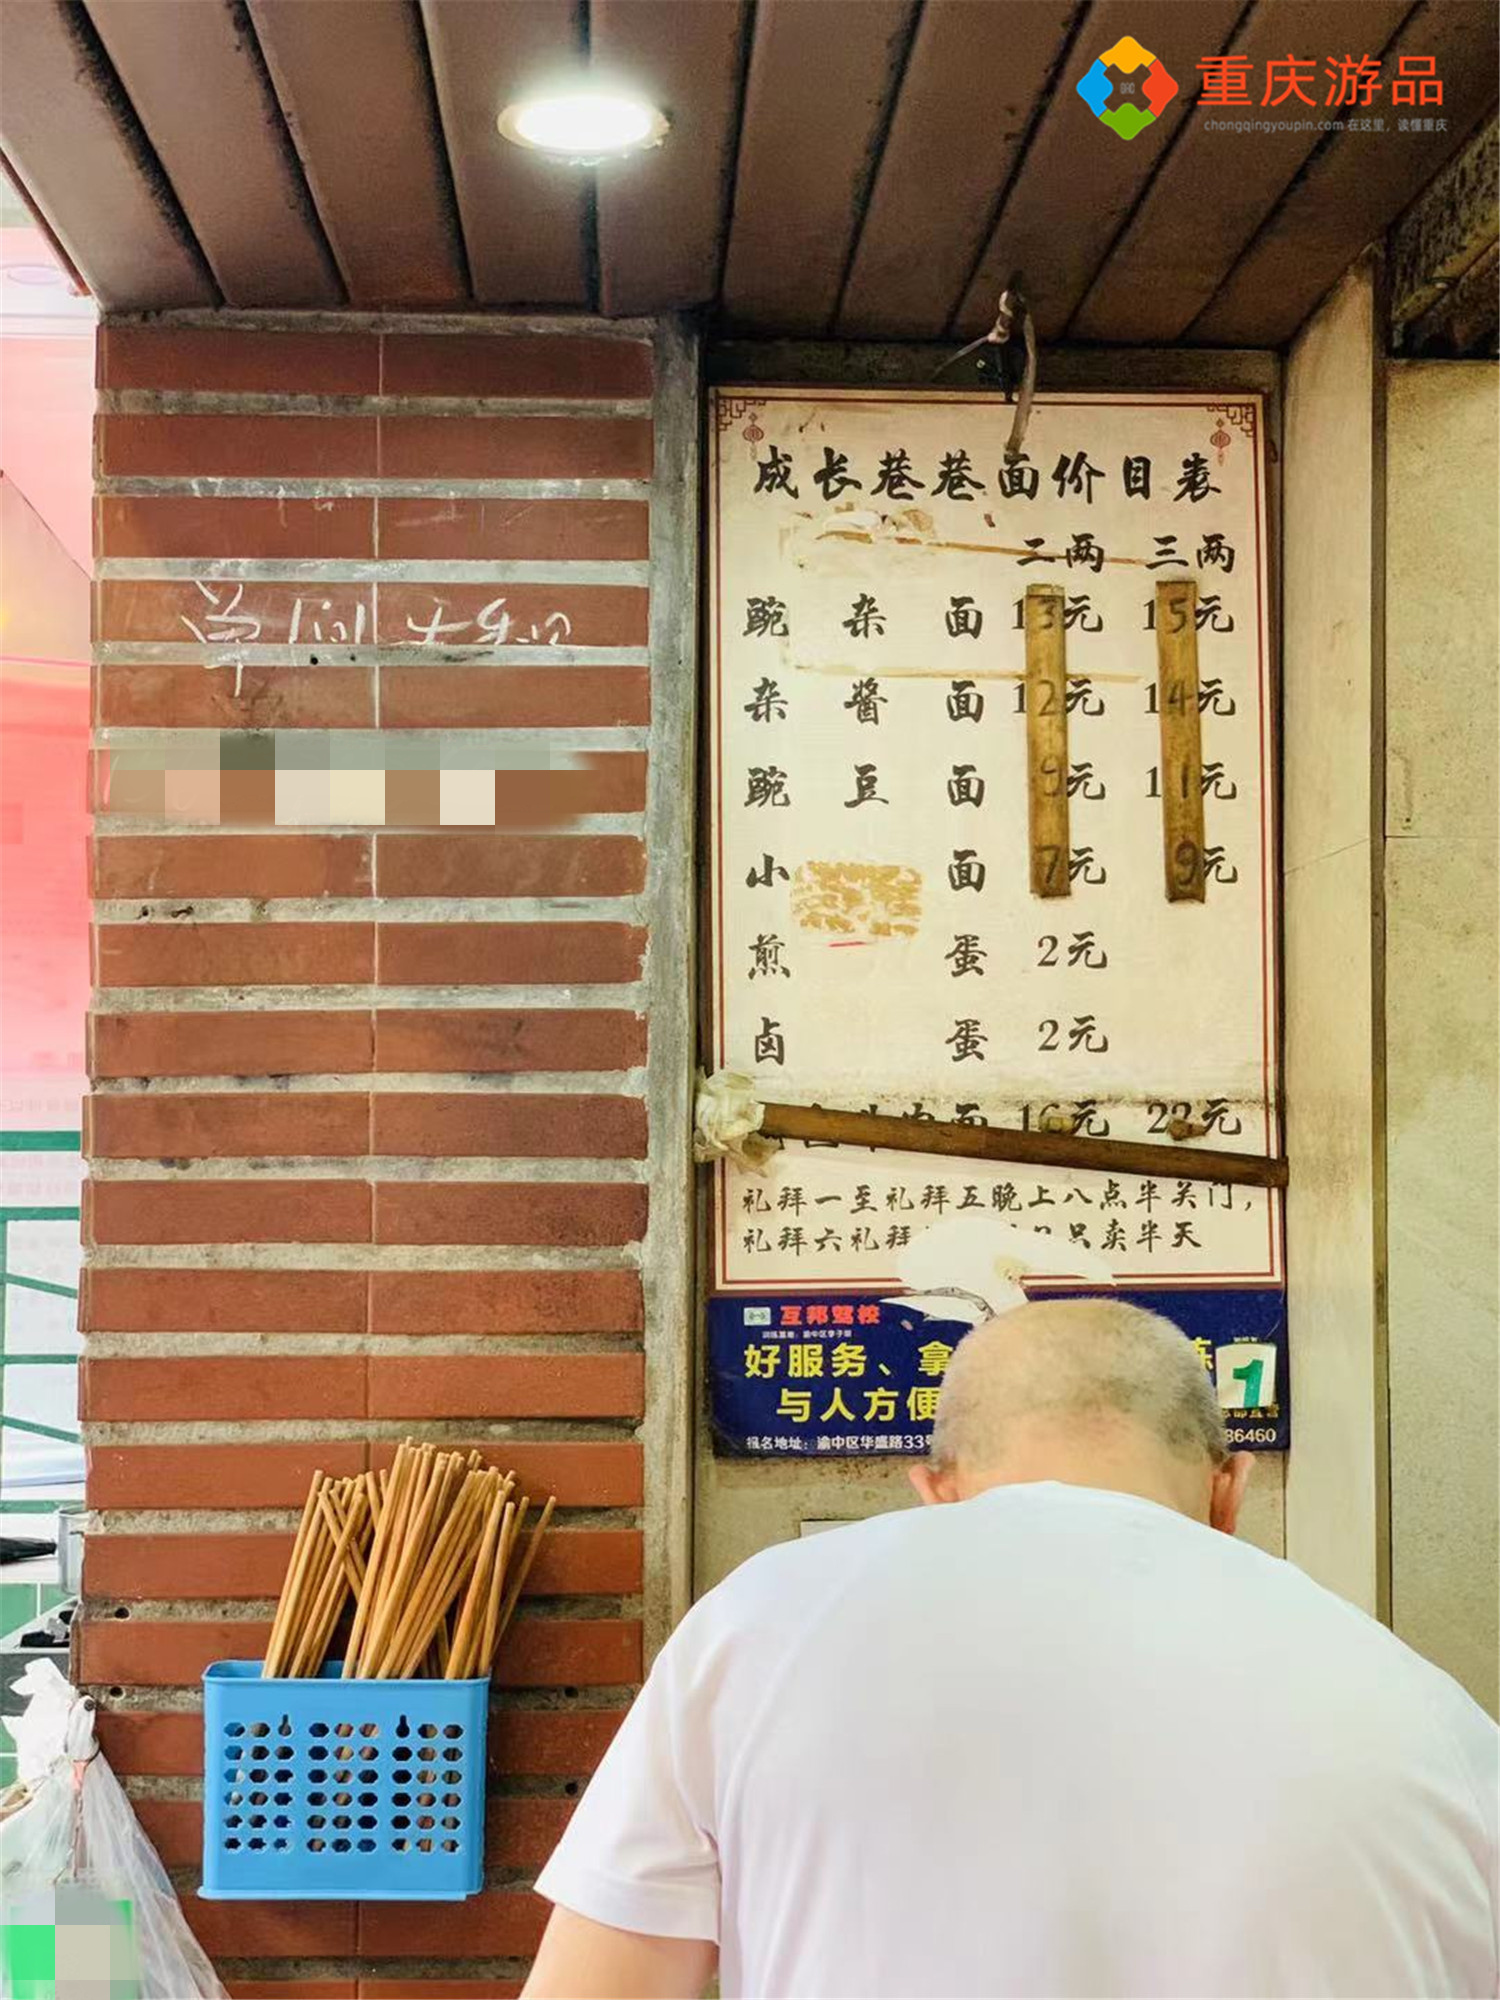 重庆游品
chongqingyoupin.com 在这里，读懂重庆
成长巷巷面价目表
二两 三两
豌杂面 13元 15元
杂酱面 12元 14元
豌豆面 9元 11元
小面 7元 9元
煎蛋 2元
卤蛋 2元
面 16元 22元
礼拜一至礼拜五晚上八点半关门，
礼拜六礼拜 只卖半天
单间大租
互邦驾校
训练基地：渝中区李子坝
好服务、拿
与人方便
报名地址：渝中区华盛路33号
1
86460